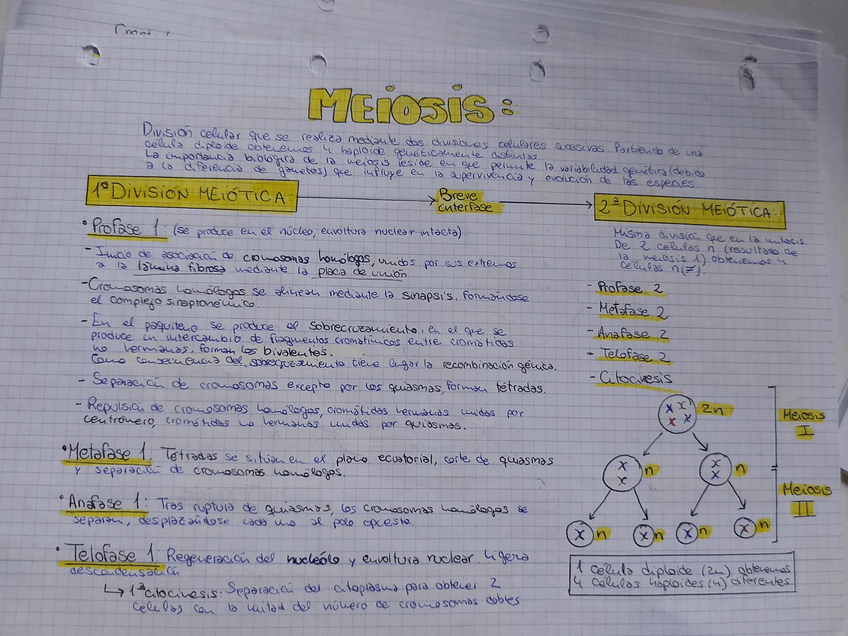 MEIOSIS:
División celular que se realiza mediante dos divisiones celulares sucesivas. Partiendo de una
célula diploide obtenemos 4 haploide genéticamente distintas.
La importancia biológica de la meiosis reside en que permite la variabilidad genética (debido
a la diferencia de gametos) que influye en la supervivencia y evolución de las especies.
1ª DIVISIÓN MEIÓTICA
Breve
interfase
2ª DIVISIÓN MEIÓTICA
• Profase 1 (se produce en el núcleo, envoltura nuclear intacta)
- Inicio de asociación de cromosomas homólogos, unidos por sus extremos
a la lámina fibrosa mediante la placa de unión
- Cromosomas homólogos se alinean mediante la sinapsis, formándose
el complejo sinaptonémico.
- En el paquiteno se produce el sobrecruzamiento, en el que se
produce un intercambio de fragmentos cromatínicos entre cromátidas
no hermanas, forman los bivalentes.
Como consecuencia del sobrecruzamiento tiene lugar la recombinación génica.
- Separación de cromosomas excepto por los quiasmas, forman tétradas.
- Repulsión de cromosomas homólogos, cromátidas hermanas unidas por
centrómero, cromátidas no hermanas unidas por quiasmas.
• Metafase 1: Tétradas se sitúan en el plano ecuatorial, corte de quiasmas
y separación de cromosomas homólogos.
• Anafase 1: Tras ruptura de quiasmas, los cromosomas homólogos se
separan, desplazándose cada uno al polo opuesto
• Telofase 1: Regeneración del nucleólo y envoltura nuclear. Ligera
descondensación
↳ 1ª citocinesis: Separación del citoplasma para obtener 2
células con la mitad del número de cromosomas dobles
Misma división que en la mitosis
De 2 células n (resultado de
la meiosis 1) obtenemos 4
células n(≠).
- Profase 2
- Metafase 2
- Anafase 2
- Telofase 2
- Citocinesis
2n
Meiosis
I
n n
Meiosis
II
n n n n
1 célula diploide (2n) obtenemos
4 células haploides (n) diferentes.